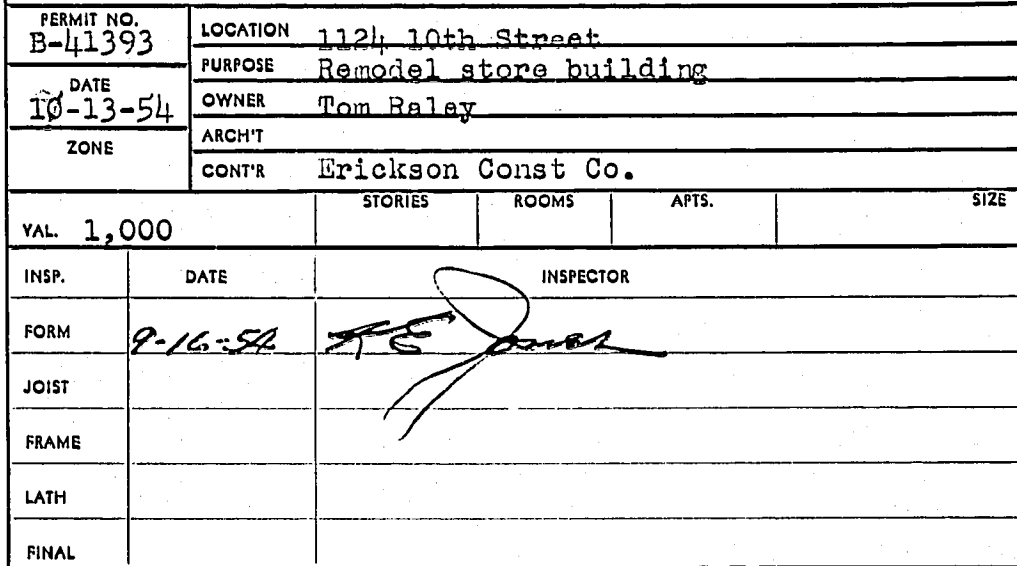 PERMIT NO.
B-41393
LOCATION 1124 10th Street
PURPOSE Remodel store building
DATE
10-13-54
OWNER Tom Raley
ZONE
ARCH'T
CONT'R Erickson Const Co.
VAL. 1,000
STORIES ROOMS APTS. SIZE
INSP. DATE INSPECTOR
FORM 9-16-54
JOIST
FRAME
LATH
FINAL